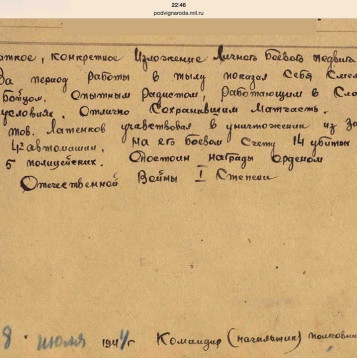 22:46
podvignaroda.mil.ru
аткое, конкретное Изложение Личного боевого подвига
За период работы в тылу показал Себя Смел
бойцом. Опытным радистом, Работающим в Сло
условиях. Отлично Сохранявшим Матчасть.
тов. Латенков учавствовал в уничтожении из За
4х автомашин. На его боевом Счету 14 убитых
5 полицейских. Достоин награды Орденом
Отечественной Войны I Степени
8 июля 1944г Командир (начальник) полковни